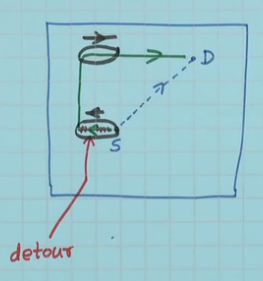 D
S
detour